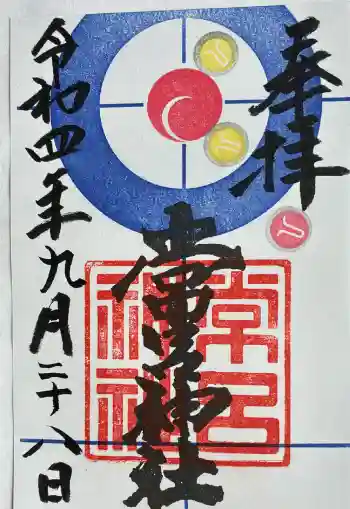 奉拝
常呂神社
常呂神社
令和四年九月二十八日